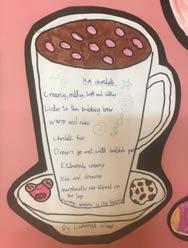 Hot chocolate
Creamy, milky, soft and silky
Listen to this bubbling brew
Warm and nice
Chocolate
Doesn't go well with bubble gum
Extremely creamy
Nice and dreamy
marshmallows stirred on
the top
By